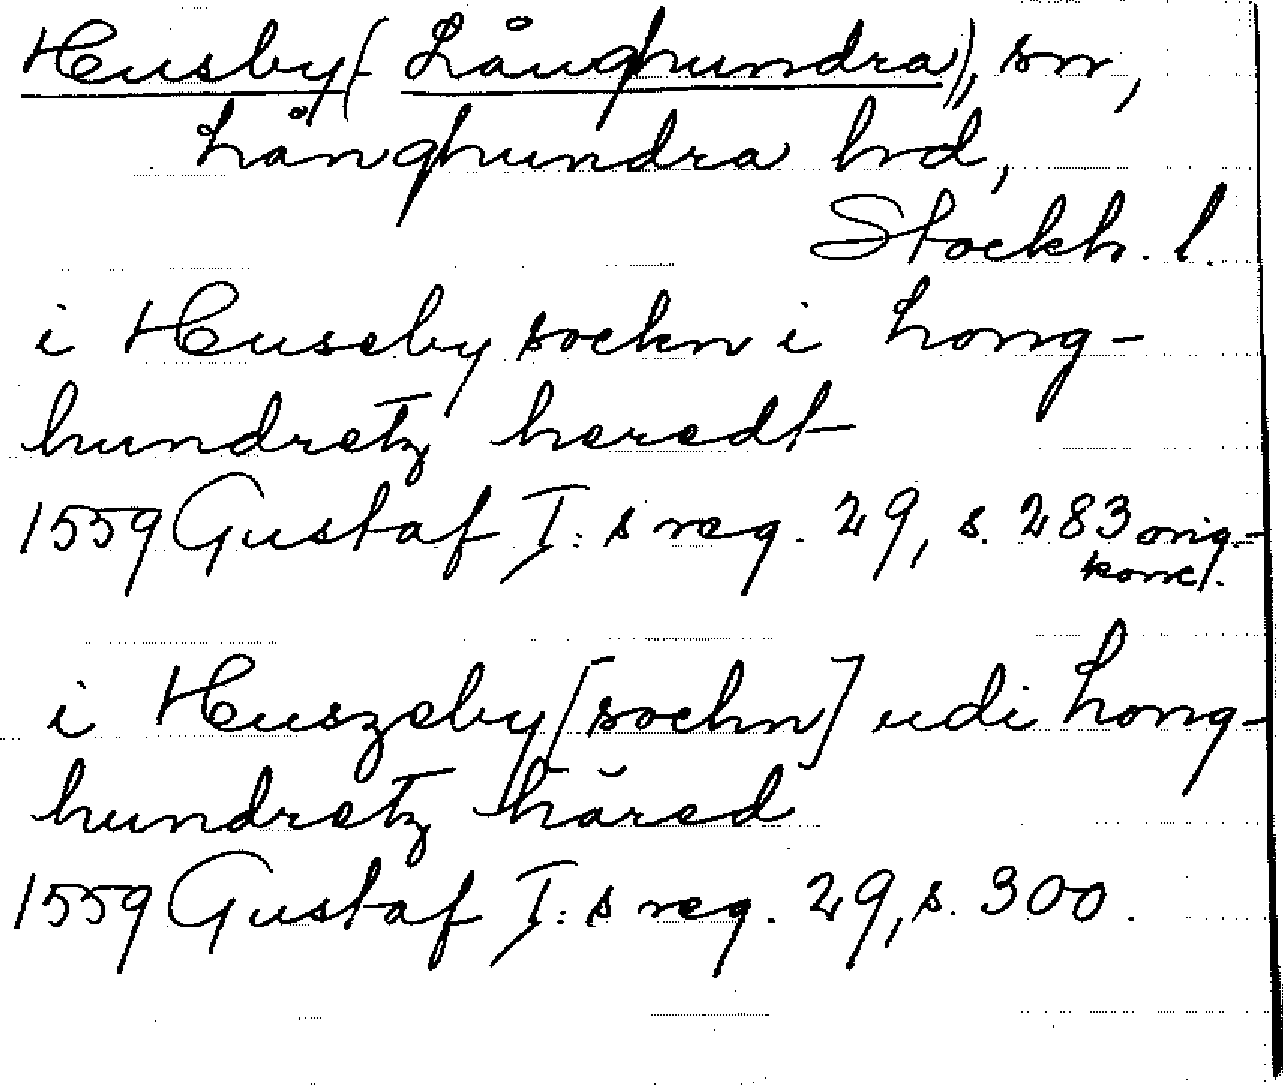 Husby (Långhundra), sn,
Långhundra hd,
Stockh. l.
i Huseby sockn i Long-
hundretz heredt
1559 Gustaf I:s reg. 29, s. 283 orig.-
konc.
i Huszeby [sochn] udi Long-
hundretz härad
1559 Gustaf I:s reg. 29, s. 300.